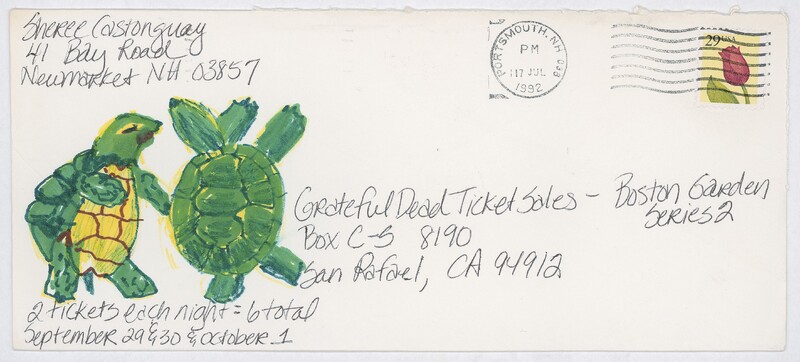 Sheree Castonguay
41 Bay Road
Newmarket NH 03857
PORTSMOUTH, NH 038
PM
17 JUL
1992
29 USA
Grateful Dead Ticket Sales – Boston Garden
Series 2
Box C-S 8190
San Rafael, CA 94912
2 tickets each night = 6 total
September 29 & 30 & October 1